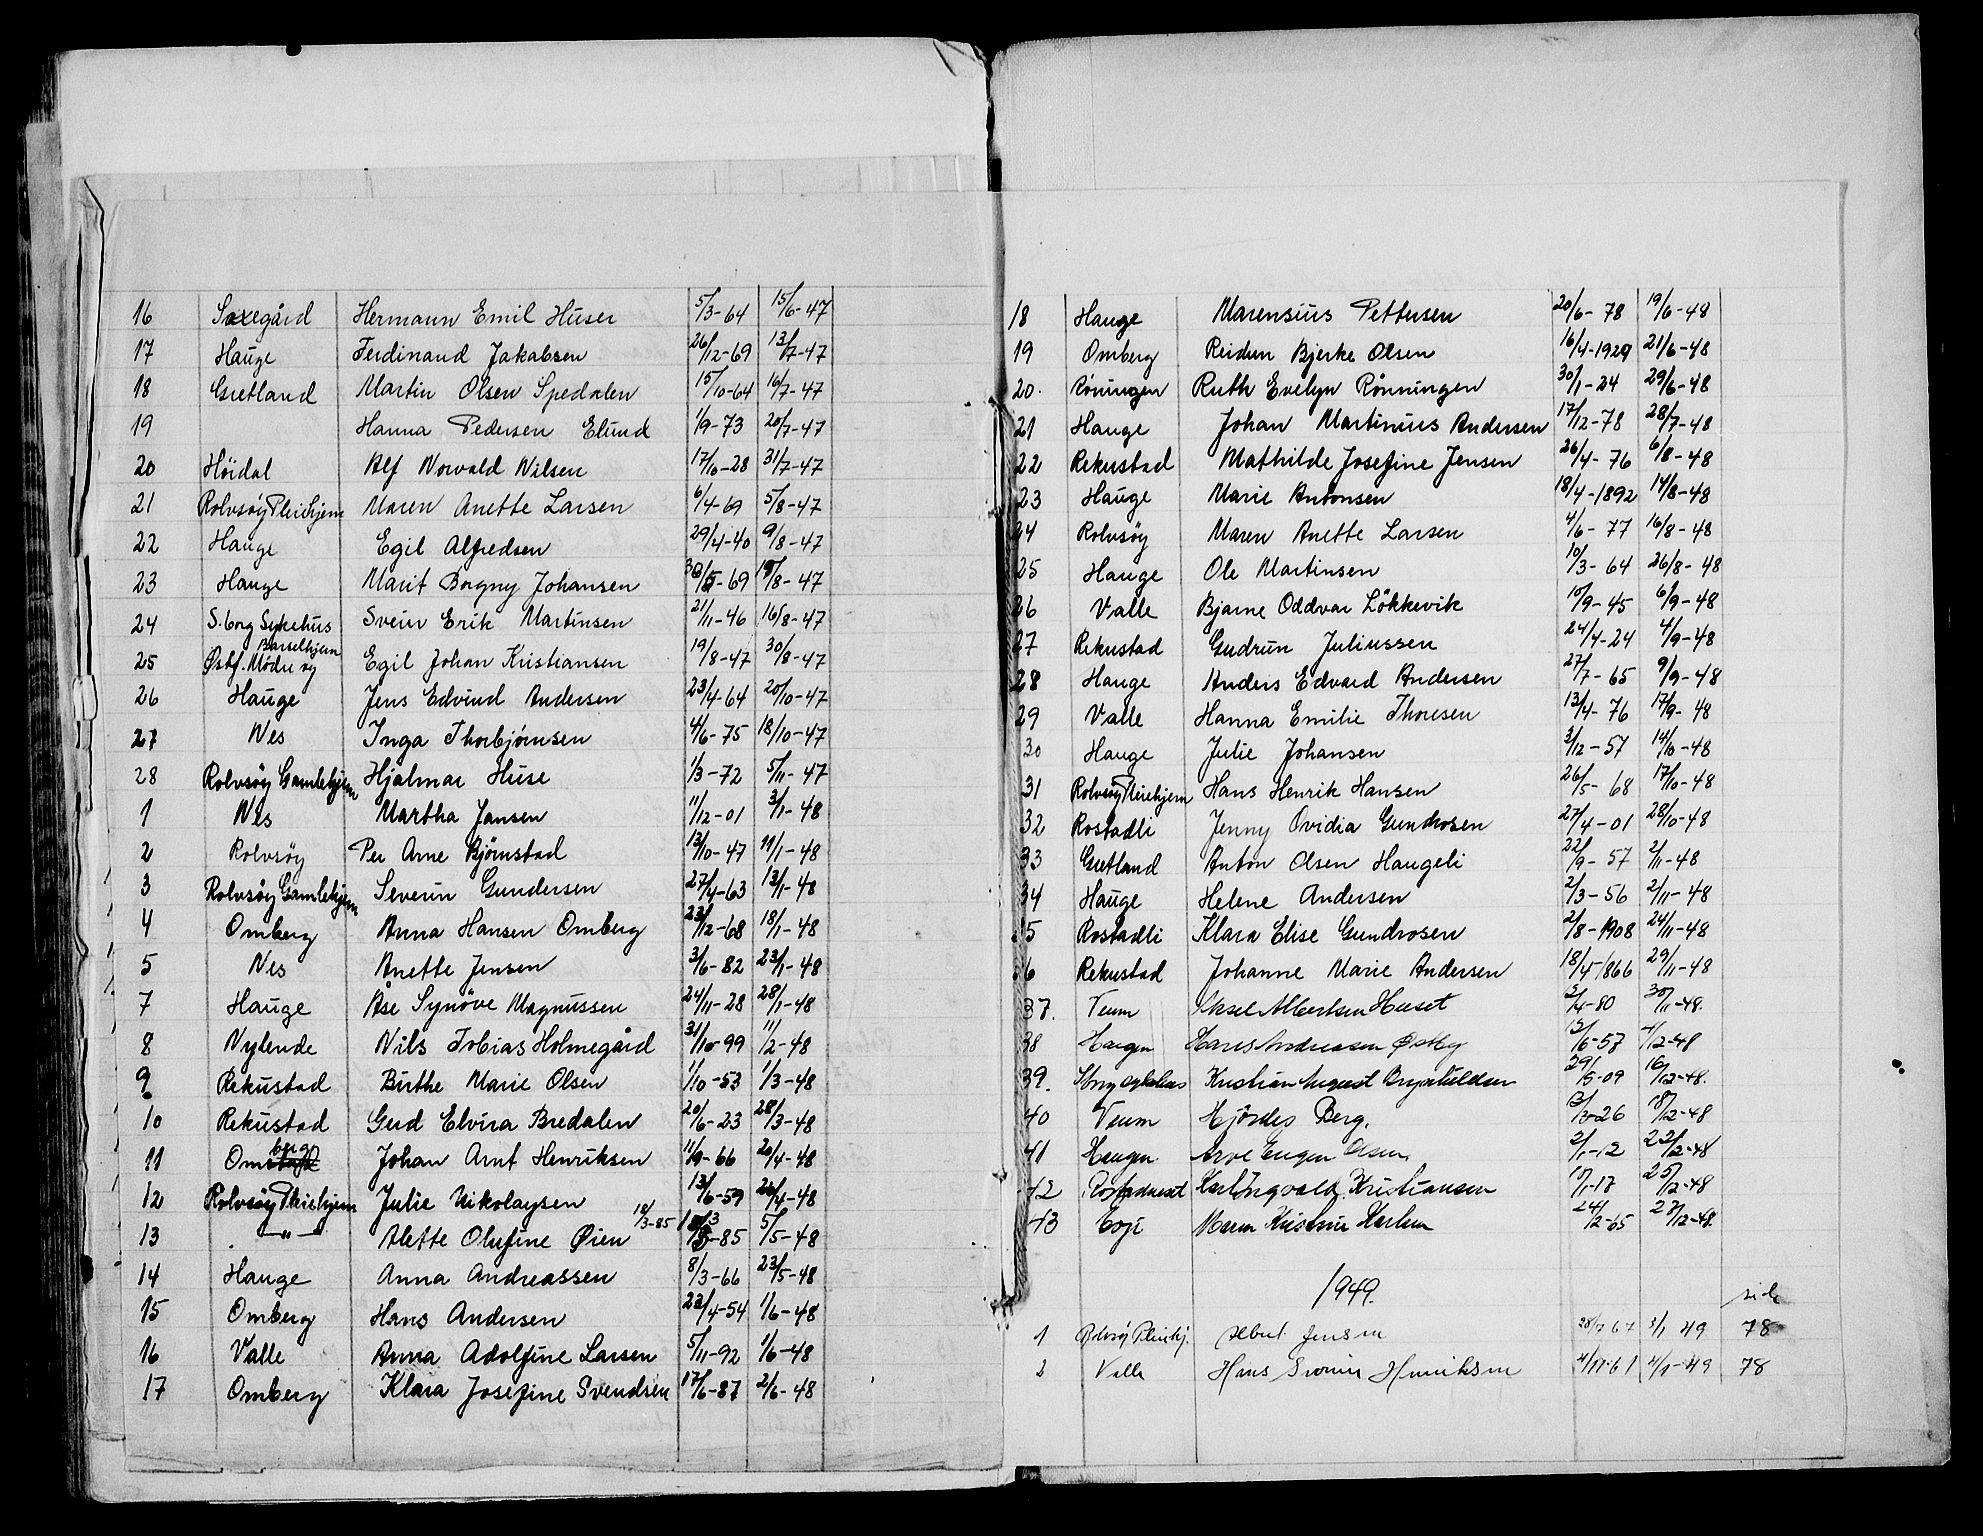 16 Saxegård Hermann Emil Huser 5/3-64 15/6-47
17 Hauge Ferdinand Jakabsen 26/12-69 13/7-47
18 Gretland Martin Olsen Spedalen 15/10-64 16/7-47
19 Hanna Pedersen Elund 1/9-73 20/7-47
20 Höidal Alf Norvald Nilsen 17/10-28 31/7-47
21 Rolvsöy Pleiehjem Maren Anette Larsen 6/4-69 5/8-47
22 Hauge Egil Alfredsen 29/4-40 9/8-47
23 Hauge Marit Borgny Johansen 30/5-69 /8-47
24 S.borg Sykehus Svein Erik Martinsen 21/11-46 16/8-47
25 Østf. Mödre og Barselhjem Egil Johan Kristiansen 19/8-47 30/8-47
26 Hauge Jens Edvind Andersen 23/4-64 20/10-47
27 Nes Inga Thorbjørnsen 4/6-75 18/10-47
28 Rolvsöy Gamlehjem Hjalmar Huse 1/3-72 5/11-47
1 Nes Martha Jansen 11/12-01 3/1-48
2 Rolvsöy Per Arne Bjørnstad 13/10-47 11/1-48
3 Rolvsöy Gamlehjem Severin Gundersen 27/4-63 13/1-48
4 Omberg Anna Hansen Omberg 23/12-68 18/1-48
5 Nes Anette Jensen 3/6-82 23/1-48
7 Hauge Åse Synöve Magnussen 24/11-28 28/1-48
8 Nylende Nils Tobias Holmegård 31/10-99 11/2-48
9 Rekustad Birthe Marie Olsen 1/10-53 1/3-48
10 Rekustad Gerd Elvira Bredalen 20/6-23 28/3-48
11 Omberg Johan Arnt Henriksen 11/9-66 20/4-48
12 Rolvsöy Pleiehjem Julie Nikolaysen 13/6-59 26/4-48
13 —"— Alette Olufine Øien 18/3-85 18/3-85 5/5-48
14 Hauge Anna Andreassen 8/3-66 23/5-48
15 Omberg Hans Andersen 22/4-54 1/6-48
16 Valle Anna Adolfine Larsen 5/11-92 1/6-48
17 Omberg Klara Josefine Svendsen 17/6-87 2/6-48
18 Hauge Marensius Pettersen 20/6-78 19/6-48
19 Omberg Reidun Bjerke Olsen 16/4-1929 21/6-48
20. Röningen Ruth Evelyn Rönningen 30/1-24 29/6-48
21 Hauge Johan Martinius Andersen 17/12-78 28/7-48
22 Rekustad Mathilde Josefine Jensen 26/4-76 6/8-48
23 Hauge Marie Antonsen 18/4-1892 14/8-48
24 Rolvsöy Maren Anette Larsen 4/6-77 16/8-48
25 Hauge Ole Martinsen 10/3-64 26/8-48
26 Valle Bjarne Oddvar Lökkevik 10/9-45 6/9-48
27 Rekustad Gudrun Juliussen 24/4-24 4/9-48
28 Hauge Anders Edvard Andersen 27/7-65 9/9-48
29 Valle Hanna Emilie Thoresen 13/4-76 17/9-48
30 Hauge Julie Johansen 3/12-57 14/10-48
31 Rolvsöy Pleiehjem Hans Henrik Hansen 26/5-68 17/10-48
32 Rostadli Jenny Ovidia Gundrosen 27/4-01 28/10-48
33 Gretland Anton Olsen Haugeli 22/9-57 2/11-48
34 Hauge Helene Andersen 2/3-56 2/11-48
35 Rostadli Klara Elise Gundrosen 2/8-1908 24/11-48
36 Rekustad Johanne Marie Andersen 18/4-1866 29/11-48
37. Veum Aksel Albertsen Huset 2/4-80 30/11-48.
38 Haugen Hans Andreassen Østby 13/6-57 4/12-48
39. Kristian August 29/5-09 16/12-48.
40 Veum Hjördis Berg. 3/3-26 18/12-48
41 Haugen Arve Eugen Olsen 2/1-12 22/12-48
42 Karl Ingvald Kristiansen /1-17 25/12-48
43 Maren Karlsen 24/2-65 27/12-48.
1949.
side
1 Rolvsöy Pleiehj. Albert Jensen 3/1 49 78
2 Valle Hans Henriksen 49 78